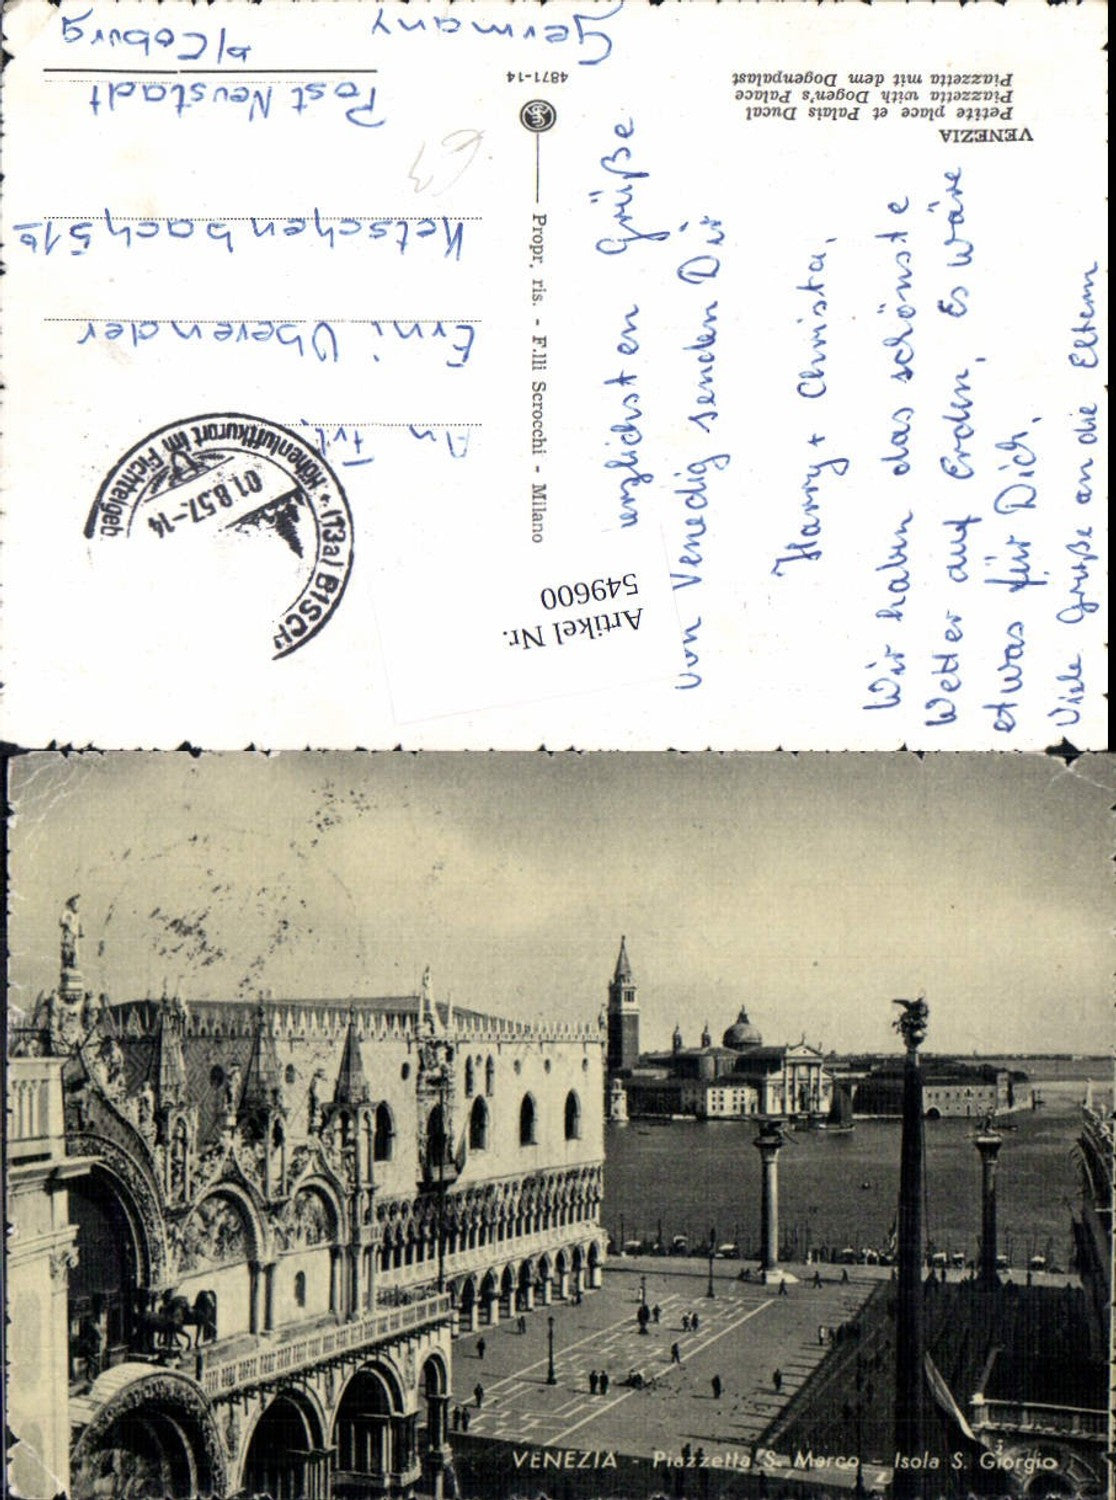 VENEZIA
Petite place et Palais Ducal
Piazzetta with Dogen's Palace
Piazzetta mit dem Dogenpalast
4871-14
Propr. ris. - F.lli Scrocchi - Milano
Artikel Nr.
549600
(13a) BISCH
Höhenluftkurort im Fichtelgeb.
01.8.57.-14
Grüße
von Venedig senden Dir
Harry + Christa.
Wir haben das schönste
Wetter auf Erden. Es wäre
etwas für Dich.
Viele Grüße an die Eltern
An Frl.
Erni
Ketschenbach 51b
Post Neustadt
b/Coburg
Germany
VENEZIA - Piazzetta S. Marco - Isola S. Giorgio